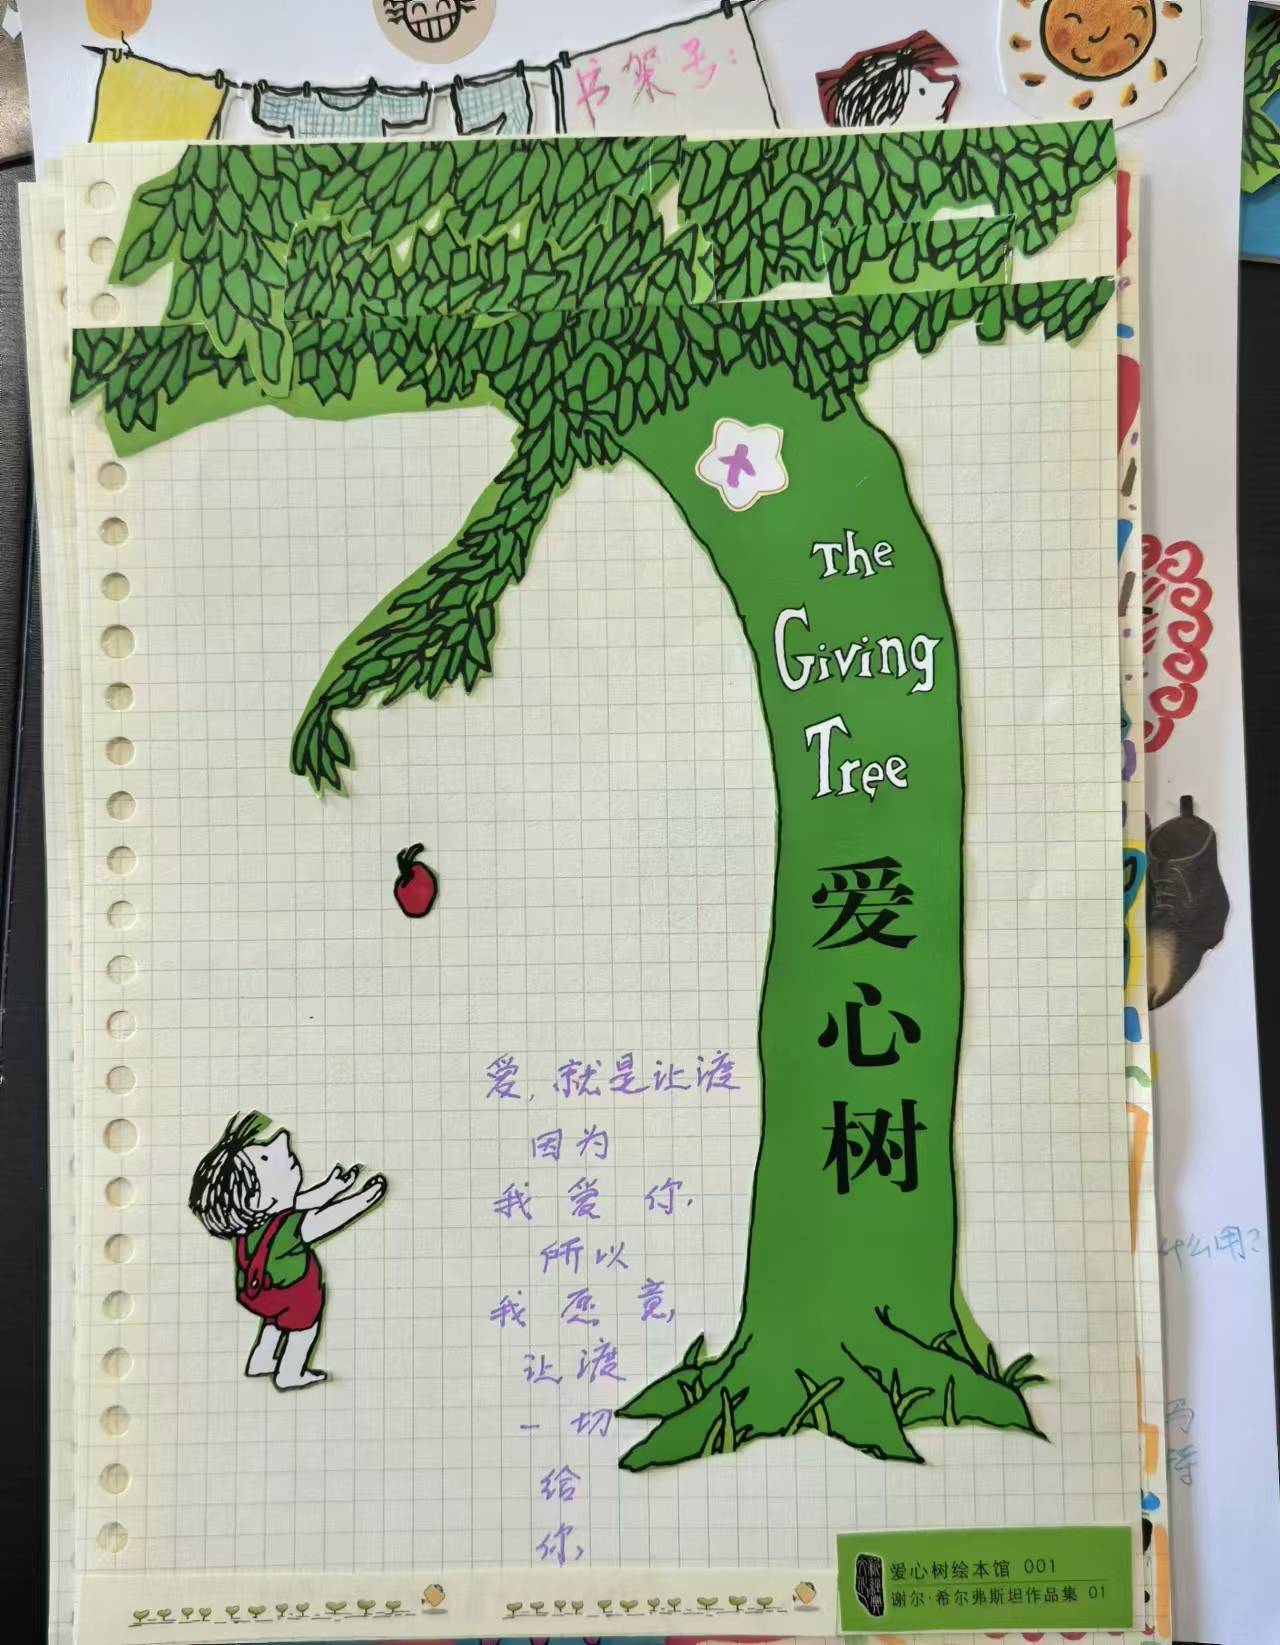 书架号:
The
Giving
Tree
爱
心
树
爱,就是让渡
因为
我爱你,
所以
我愿意,
让渡
一切
给
你,
什么用?
爱心树绘本馆 001
谢尔·希尔弗斯坦作品集 01